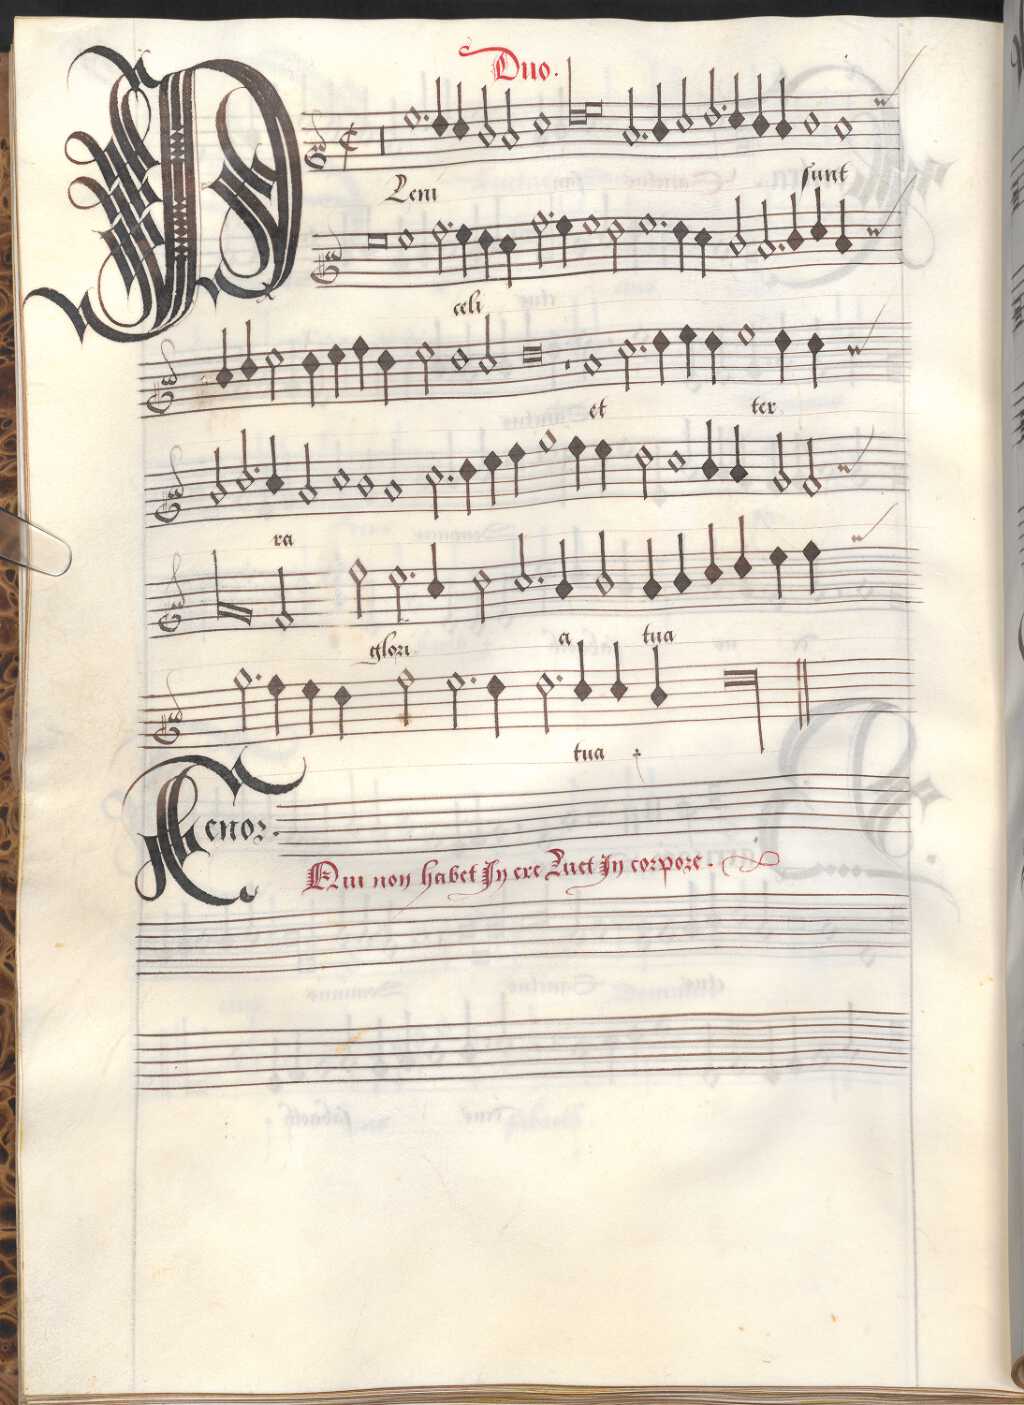 Duo.
Pleni sunt
celi
et ter
ra
glori a tua
tua
Tenor.
Qui non habet In ere Luet In corpore.